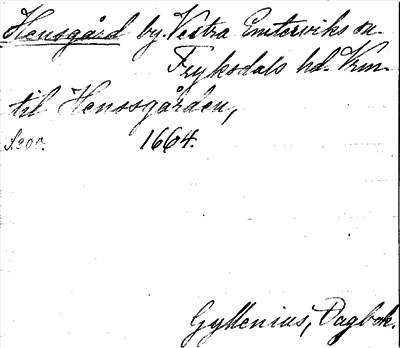 Hensgård by. Vestra Emterviks sn.
Fryksdals hd. Vrm.
til Henssgården,
S. 200. 1664.
Gyllenius, Dagbok.